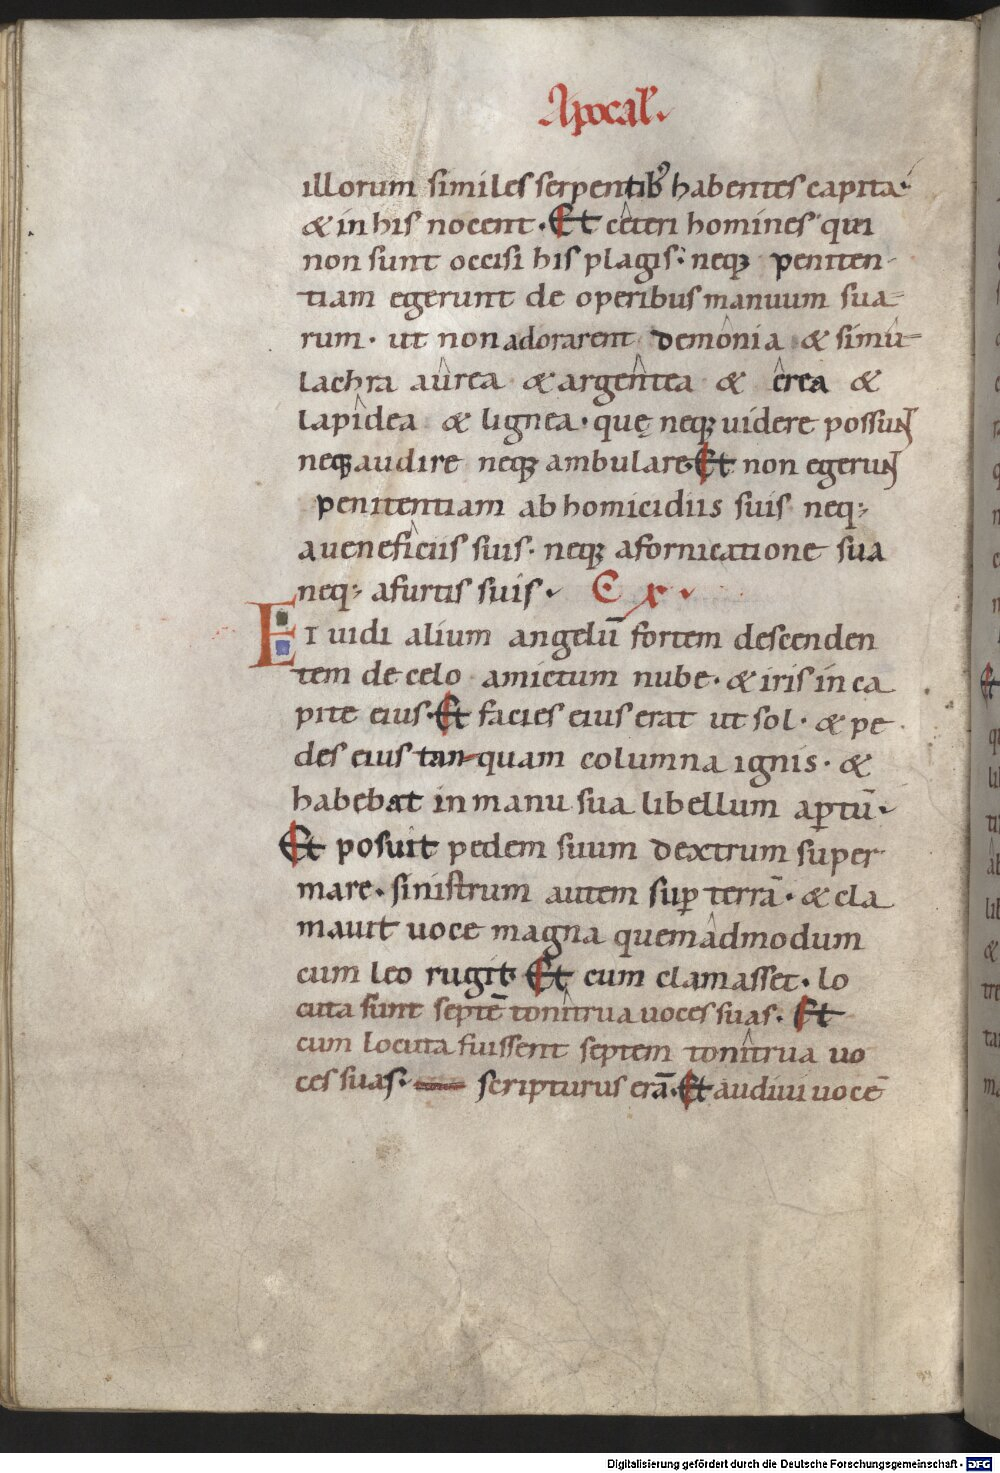 Apocal᾽.
illorum similes serpentib᾽ habentes capita·
& in his nocent · Et ceteri homines qui
non sunt occisi his plagis · neq; peniten
tiam egerunt de operibus manuum sua-
rum · ut non adorarent demonia & simu-
lachra aurea & argentea & erea &
lapidea & lignea · quę neq; uidere possunt
neq; audire neq; ambulare Et non egerunt
penitentiam ab homicidiis suis neq;
a ueneficiis suis · neq; a fornicatione sua
neq; a furtis suis · C x ·
Et uidi alium angelū fortem descenden
tem de celo amictum nube · & iris in ca
pite eius · Et facies eius erat ut sol · & pe
des eius tan-quam columna ignis · &
habebat in manu sua libellum aꝑtū ·
Et posuit pedem suum dextrum super
mare · sinistrum autem suꝑ terrā · & cla
mauit uoce magna quemadmodum
cum leo rugit · Et cum clamasset · lo
cuta sunt septē tonitrua uoces suas · Et
cum locuta fuissent septem tonitrua uo
ces suas · scripturus erā · Et audiui uocē
Digitalisierung gefördert durch die Deutsche Forschungsgemeinschaft - DFG